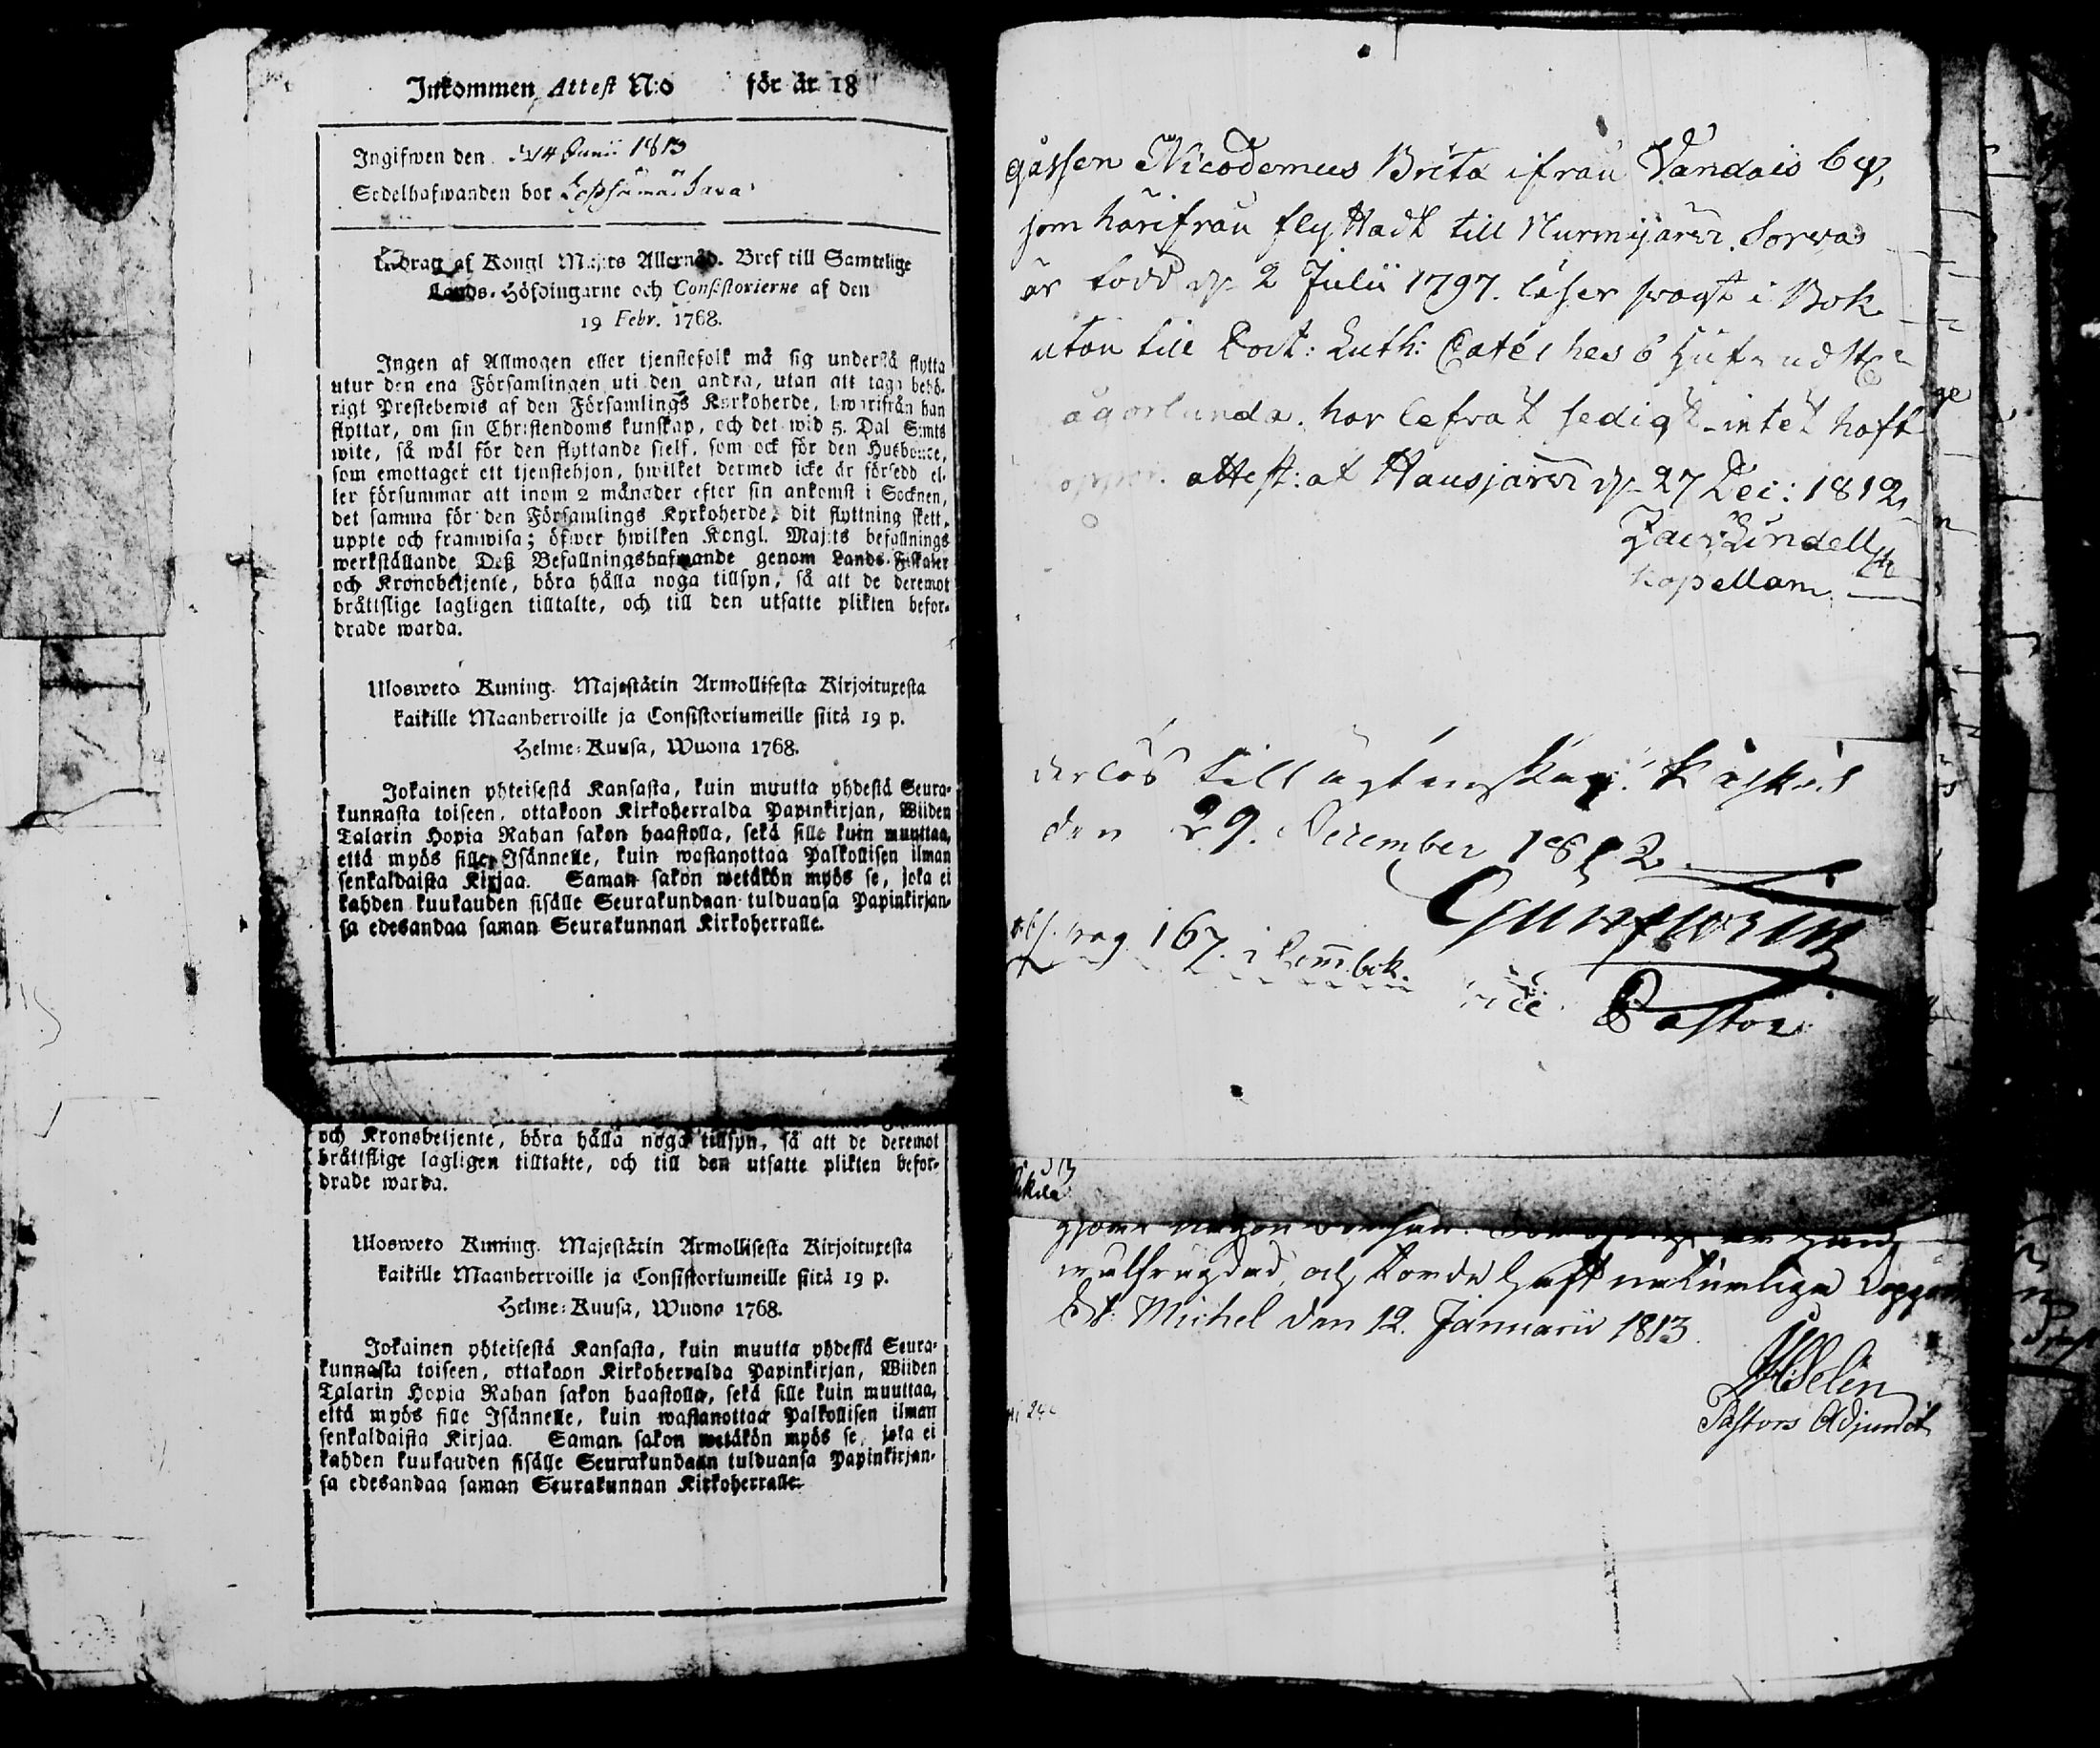 Inkommen Attest N:o för år 18
Ingifwen den 4 Junii 1813
Sedelhafwanden bor
Utdrag af Kongl Maj:ts Allernåd. Bref till Samtelige
Lands-Höfdingarne och Consistorierne af den
19 Febr. 1768.
Ingen af Allmogen eller tjenstefolk må sig understå flytta
utur den ena Församlingen uti den andra, utan att taga behö-
rigt Prestebewis af den Församlings Kyrkoherde, hwarifrån han
flyttar, om sin Christendoms kunskap, och det wid 5. Dal S:mts
wite, så wäl för den flyttande sjelf, som ock för den Husbonde,
som emottager ett tjenstehjon, hwilket dermed icke är försedd el-
ler försummar att inom 2 månader efter sin ankomst i Socknen,
det samma för den Församlings Kyrkoherde, dit flyttning skett,
uppte och framwisa; öfwer hwilken Kongl. Maj:ts befallnings
werkställande Deß Befallningshafwande genom Lands-Fiskaler
och Kronobetjente, böra hålla noga tillsyn, så att de deremot
bråttslige lagligen tilltalte, och till den utsatte plikten befor-
drade warda.
Ulosweto Kuning. Majestätin Armollisesta Kirjoituxesta
kaikille Maanherroille ja Consistoriumeille siitä 19 p.
Helme-Kuusa, Wuona 1768.
Jokainen yhteisestä Kansasta, kuin muutta yhdestä Seura-
kunnasta toiseen, ottakoon Kirkoherralda Papinkirjan, Wiiden
Talarin Hopia Rahan sakon haastolla, sekä sille kuin muuttaa,
että myös sille Isännelle, kuin wastanottaa Palkollisen ilman
senkaldaista Kirjaa. Saman sakon wetäkön myös se, joka ei
kahden kuukauden sisälle Seurakundaan tulduansa Papinkirjan-
sa edesandaa saman Seurakunnan Kirkoherralle.
och Kronobetjente, böra hålla noga tillsyn, så att de deremot
bråttslige lagligen tilltalte, och till den utsatte plikten befor-
drade warda.
Ulosweto Kuning. Majestätin Armollisesta Kirjoituxesta
kaikille Maanherroille ja Consistoriumeille siitä 19 p.
Helme-Kuusa, Wuona 1768.
Jokainen yhteisestä Kansasta, kuin muutta yhdestä Seura-
kunnasta toiseen, ottakoon Kirkoherralda Papinkirjan, Wiiden
Talarin Hopia Rahan sakon haastolla, sekä sille kuin muuttaa,
että myös sille Isännelle, kuin wastanottaa Palkollisen ilman
senkaldaista Kirjaa. Saman sakon wetäkön myös se, joka ei
kahden kuukauden sisälle Seurakundaan tulduansa Papinkirjan-
sa edesandaa saman Seurakunnan Kirkoherralle.
gåssen Nicodemus Brita ifrån Vandais by,
som härifrån flyttadt till Nurmijärvi
är född d. 2 Julii 1797. läser swagt i Bok
utan till Luth: Cateches
har lefvat sedigt intet haft
koppor. attest: at Hausjärvi d. 27 Dec: 1812,
Zach Lindell
Kapellan
derlös till ägtenskap.
den 29. December 1812.
pag 167. i Comm bok.
vice Pastor
och torde haft naturliga koppor
St. Michel den 12. Januarii 1813.
Selin
Pastors Adjunct